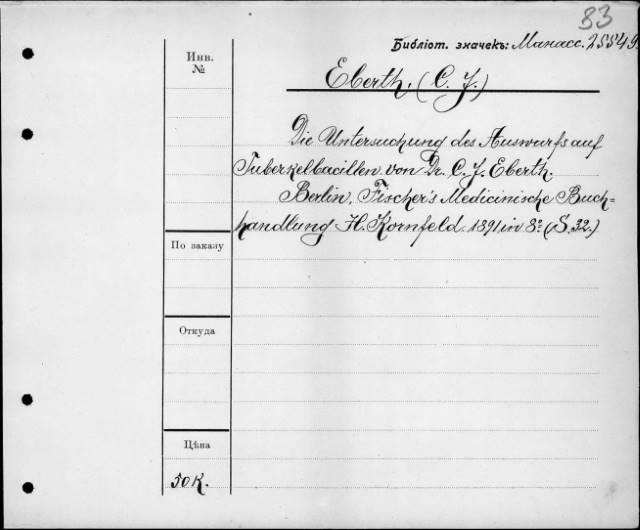 83
Библіот. значекъ: Манасс. 25549
Инв.
№
Eberth. (C. J.)
Die Untersuchung des Auswurfs auf
Tuberkelbacillen von Dr. C. J. Eberth.
Berlin, Fischer's Medicinische Buch=
handlung H. Kornfeld. 1891. in 8º (S. 32.)
По заказу
Откуда
Цѣна
50 к.